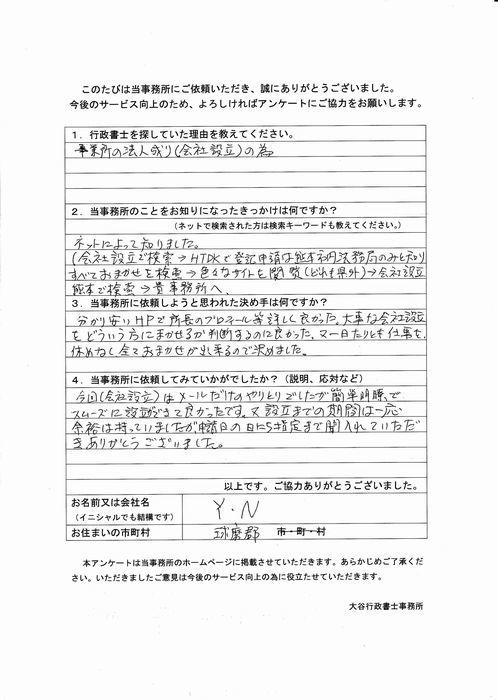 このたびは当事務所にご依頼いただき、誠にありがとうございました。
今後のサービス向上のため、よろしければアンケートにご協力をお願いします。
1．行政書士を探していた理由を教えてください。
事業所の法人成り(会社設立)の為
2．当事務所のことをお知りになったきっかけは何ですか？
（ネットで検索された方は検索キーワードも教えてください。）
ネットによって知りました。
(会社設立で検索→HTDKで登記申請は熊本地方法務局のみと知り
すべておまかせを検索→色々なサイトを閲覧(どれも県外)→会社設立
熊本で検索→貴事務所へ、
3．当事務所に依頼しようと思われた決め手は何ですか？
分かり安いHPで所長のプロフィール等詳しく良かった、大事な会社設立
をどういう方にまかせるか判断するのに良かった、又一日たりとも仕事を
休めなし全ておまかせが出来るので決めました。
4．当事務所に依頼してみていかがでしたか？（説明、応対など）
今回(会社設立)はメールだけのやりとりでしたが簡単明瞭、で
スムーズに設立ができて良かったです。又設立までの期間は一応
余裕は持っていましたが申請日の日にち指定まで聞入れていただ
きありがとうございました。
以上です。ご協力ありがとうございました。
お名前又は会社名
（イニシャルでも結構です）
Y・N
お住まいの市町村
球磨郡 市・町・村
本アンケートは当事務所のホームページに掲載させていただきます。あらかじめご了承くだ
さい。いただきましたご意見は今後のサービス向上の為に役立たせていただきます。
大谷行政書士事務所